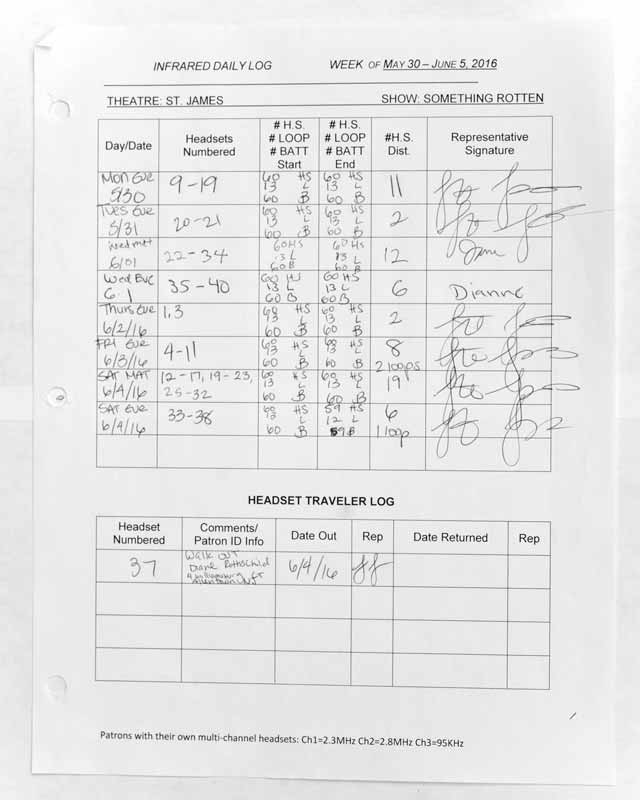 INFRARED DAILY LOG WEEK OF MAY 30 – JUNE 5, 2016
THEATRE: ST. JAMES SHOW: SOMETHING ROTTEN
Day/Date Headsets Numbered # H.S. # LOOP # BATT Start # H.S. # LOOP # BATT End #H.S. Dist. Representative Signature
Mon Eve 5/30 9-19 60 HS 13 L 60 B 60 HS 13 L 60 B 11
Tues Eve 5/31 20-21 60 HS 13 L 60 B 60 HS 13 L 60 B 2
Wed Mat 6/01 22-34 60 HS 13 L 60 B 60 HS 13 L 60 B 12
Wed Eve 6·1 35-40 60 HS 13 L 60 B 60 HS 13 L 60 B 6 Dianne
Thurs Eve 6/2/16 1,3 60 HS 13 L 60 B 60 HS 13 L 60 B 2
FRI EVE 6/3/16 4-11 60 HS 13 L 60 B 60 HS 13 L 60 B 8 2 loops
SAT MAT 6/4/16 12-17, 19-23, 25-32 60 HS 13 L 60 B 60 HS 13 L 60 B 19
SAT EVE 6/4/16 33-38 60 HS 13 L 60 B 59 HS 12 L 59 B 6 1 loop
HEADSET TRAVELER LOG
Headset Numbered Comments/ Patron ID Info Date Out Rep Date Returned Rep
37 WALK OUT Diane Rothschild 6/4/16
Patrons with their own multi-channel headsets: Ch1=2.3MHz Ch2=2.8MHz Ch3=95KHz